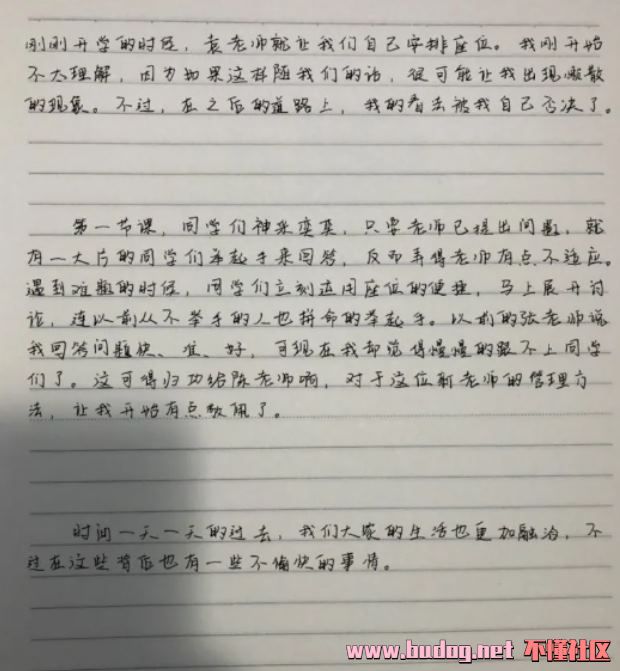 刚刚开学的时候，袁老师就让我们自己安排座位。我刚开始
不大理解，因为如果这样随我们的话，很可能让我出现懒散
的现象。不过，在之后的道路上，我的看法被我自己否决了。
第一节课，同学们神采奕奕，只要老师已提出问题，就
有一大片的同学们举起手来回答，反而弄得老师有点不适应。
遇到难题的时候，同学们立刻运用座位的便捷，马上展开讨
论，连以前从不举手的人也拼命的举起手。以前的张老师说
我回答问题快、准、好，可现在我却觉得慢慢的跟不上同学
们了。这可得归功给陈老师啊，对于这位新老师的管理方
法，让我开始有点敬佩了。
时间一天一天的过去，我们大家的生活也更加融洽，不
过在这些背后也有一些不愉快的事情。
www.budog.net 不懂社区